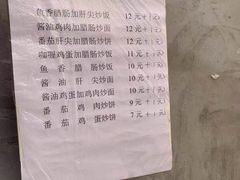 鱼香腊肠加肝尖炒饭 12元+1元)
酱油鸡肉加腊肠炒面 12元+1元)
番茄鸡肉加肝尖炒饼 12元+1元)
咖喱鸡蛋加腊肠炒饭 11元+1元)
鱼香腊肠炒饭 10元+1元)
酱油肝尖炒面 10元+1元)
酱油鸡蛋加鸡肉炒面 10元+1元)
番茄鸡肉炒饼 9元+1元)
番茄鸡蛋炒饼 7元+1元)